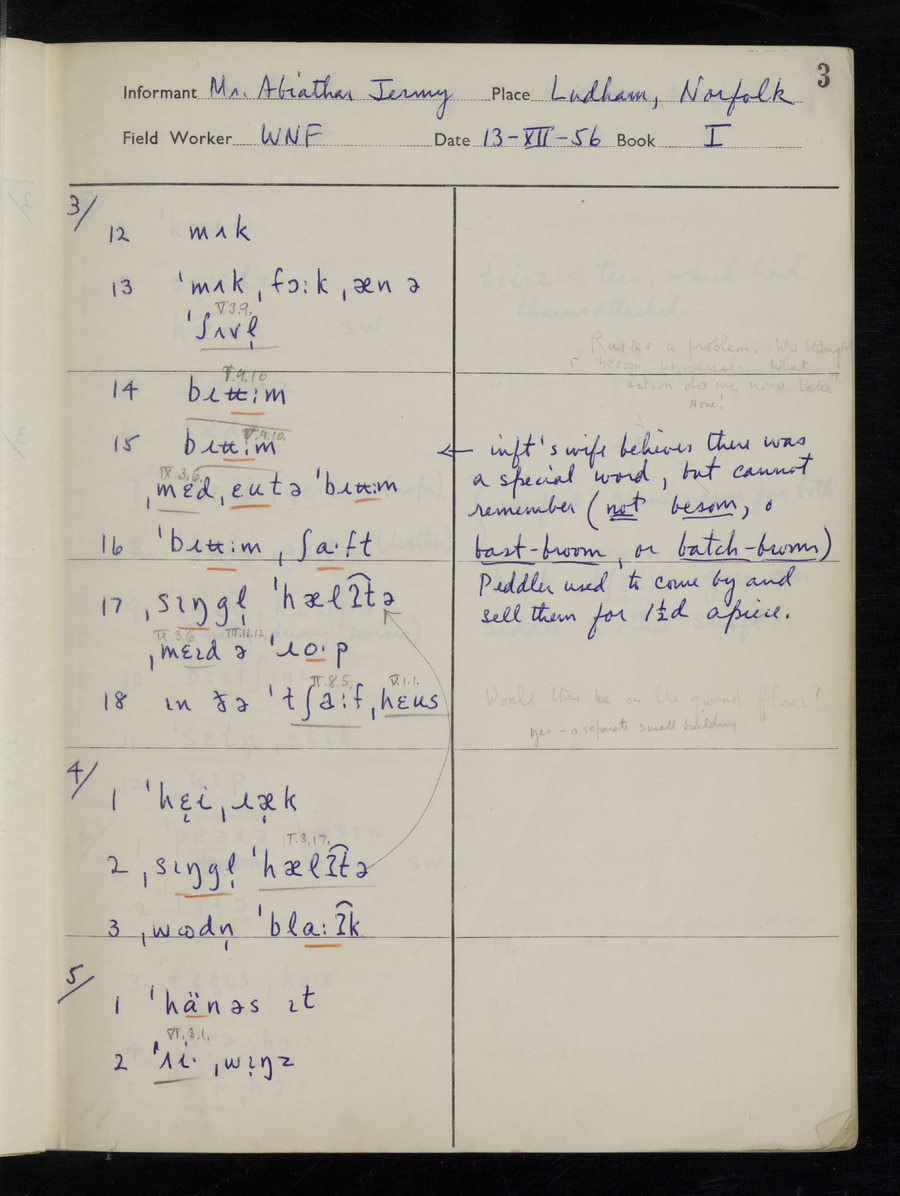 3
Informant Mr. Abiathar Jermy Place Ludham, Norfolk
Field Worker WNF Date 13-XII-56 Book I
3/
12 mʌk
13 ˈmʌk ˌfɔːk ˌæn ə
V.3.9.
ˈʃʌvl̩
Raises a problem. We thought
besom universal. What
action do we now take?
None!
V.9.10
14 bɹʉːm
V.9.10.
15 bɹʉːm
← inft's wife believes there was
a special word, but cannot
remember (not besom, o
bast-broom, or batch-broom)
Peddler used to come by and
sell them for 1½d apiece.
IX.3.6.
ˌmɛd ˌɐʉtə ˈbɹʉːm
16 ˈbɹʉːm ˌʃaːft
17 ˌsɪŋgl̩ ˈhælʔ͡tə
IX.3.6. III.13.12.
ˌmɛɪd ə ˈɹoˑp
II.8.5. V.1.1.
18 ɪn ðə ˈtʃaːf ˌhɛʉs
Would this be on the ground floor?
yes – a separate small building
4/
1 ˈhɛ̣i ˌɹæ̣k
I.3.17.
2 ˌsɪŋgl̩ ˈhælʔ͡tə
3 ˌwɷdn̩ ˈblaːʔ͡k
5/
1 ˈhänəs ɪt
VI.3.1.
2 ˈʌiˑ ˌwɪ̣ŋz